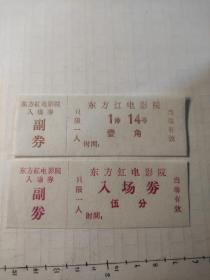 东方红电影院
入场券
副券
只限一人
东方红电影院
1排14号
壹角
时间:
当场有效
东方红电影院
入场券
副券
只限一人
东方红电影院
入场券
伍分
时间:
当场有效